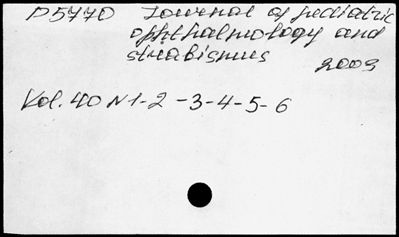 P5770 Journal of pediatric
ophthalmology and
strabismus
2003
Vol. 40 N 1-2 -3-4-5-6